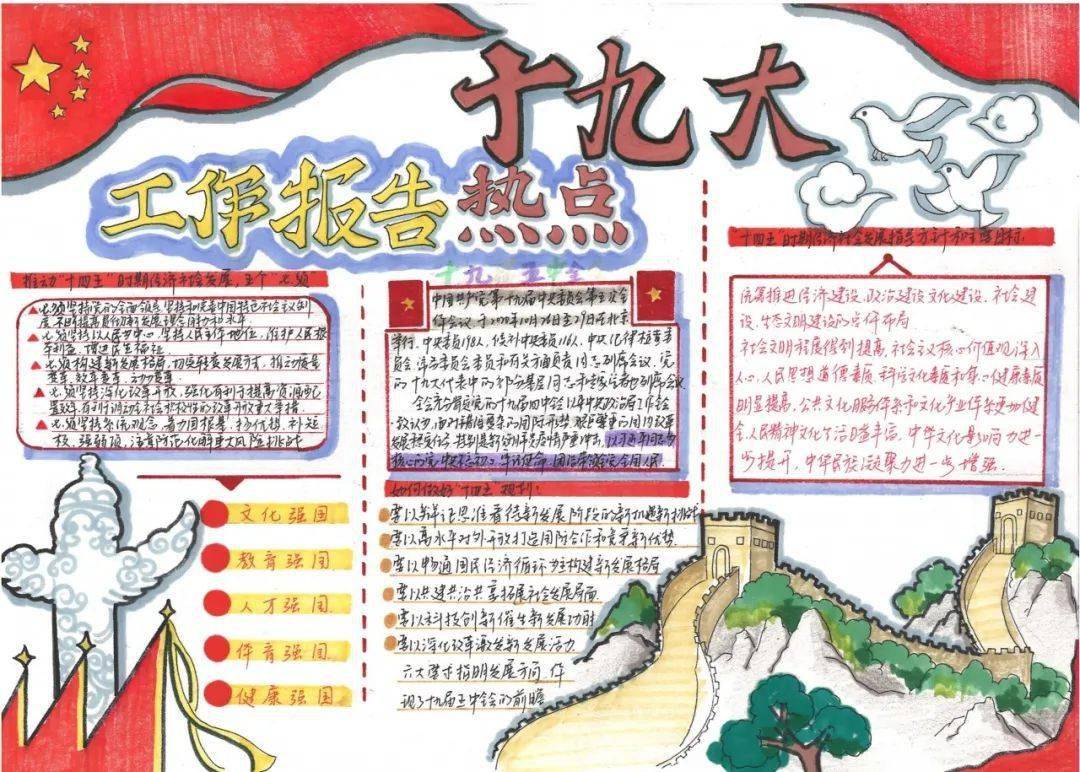 十九大
工作报告热点
十九 五中全
推动"十四五"时期经济社会发展，五个"必须"
必须坚持党的全面领导，坚持和完善中国特色社会主义制
度，不断提高贯彻新发展理念能力和水平
必须坚持以人民为中心，坚持人民主体地位，维护人民根
本利益，增进民生福祉
必须构建新发展格局，切实转变发展方式，推动质量
变革，效率变革，动力变革
必须坚持深化改革开放，强化有利于提高资源配
置效率，有利于调动全社会积极性的改革开放重大举措
必须坚持系统观念，着力固根基，扬优势，补短
板，强弱项，注重防范化解重大风险挑战
文化强国
教育强国
人才强国
体育强国
健康强国
中国共产党第十九届中央委员会第五次全
体会议，于2020年10月26日至29日在北京
举行，中央委员198人，候补中央委员166人，中央纪律检查委
员会，常务委员会委员和有关方面负责同志列席会议，党
的十九大代表中的部分基层同志和专家学者也列席会议
全会充分肯定党的十九届四中全会以来中央政治局工作，全会
一致认为，面对错综复杂的国际形势，艰巨繁重的国内改革
发展稳定任务，特别是新冠肺炎疫情严重冲击，以习近平同志为
核心的党中央不忘初心，牢记使命，团结带领全党全国人民
如何做好"十四五"规划：
要以辩证思维看待新发展阶段的新机遇新挑战
要以高水平对外开放打造国际合作和竞争新优势
要以畅通国民经济循环为主构建新发展格局
要以共建共治共享拓展社会发展局面
要以科技创新催生新发展动能
要以深化改革激发新发展活力
六大坚守指明发展方向，体
现了十九届五中全会的前瞻
"十四五"时期经济社会发展指导方针和主要目标
统筹推进经济建设，政治建设文化建设，社会建
设，生态文明建设的总体布局
社会文明程度得到提高，社会主义核心价值观深入
人心，人民思想道德素质，科学文化素质和身心健康素质
明显提高，公共文化服务体系和文化产业体系更加健
全，人民精神文化生活日益丰富，中华文化影响力进一
步提升，中华民族凝聚力进一步增强．